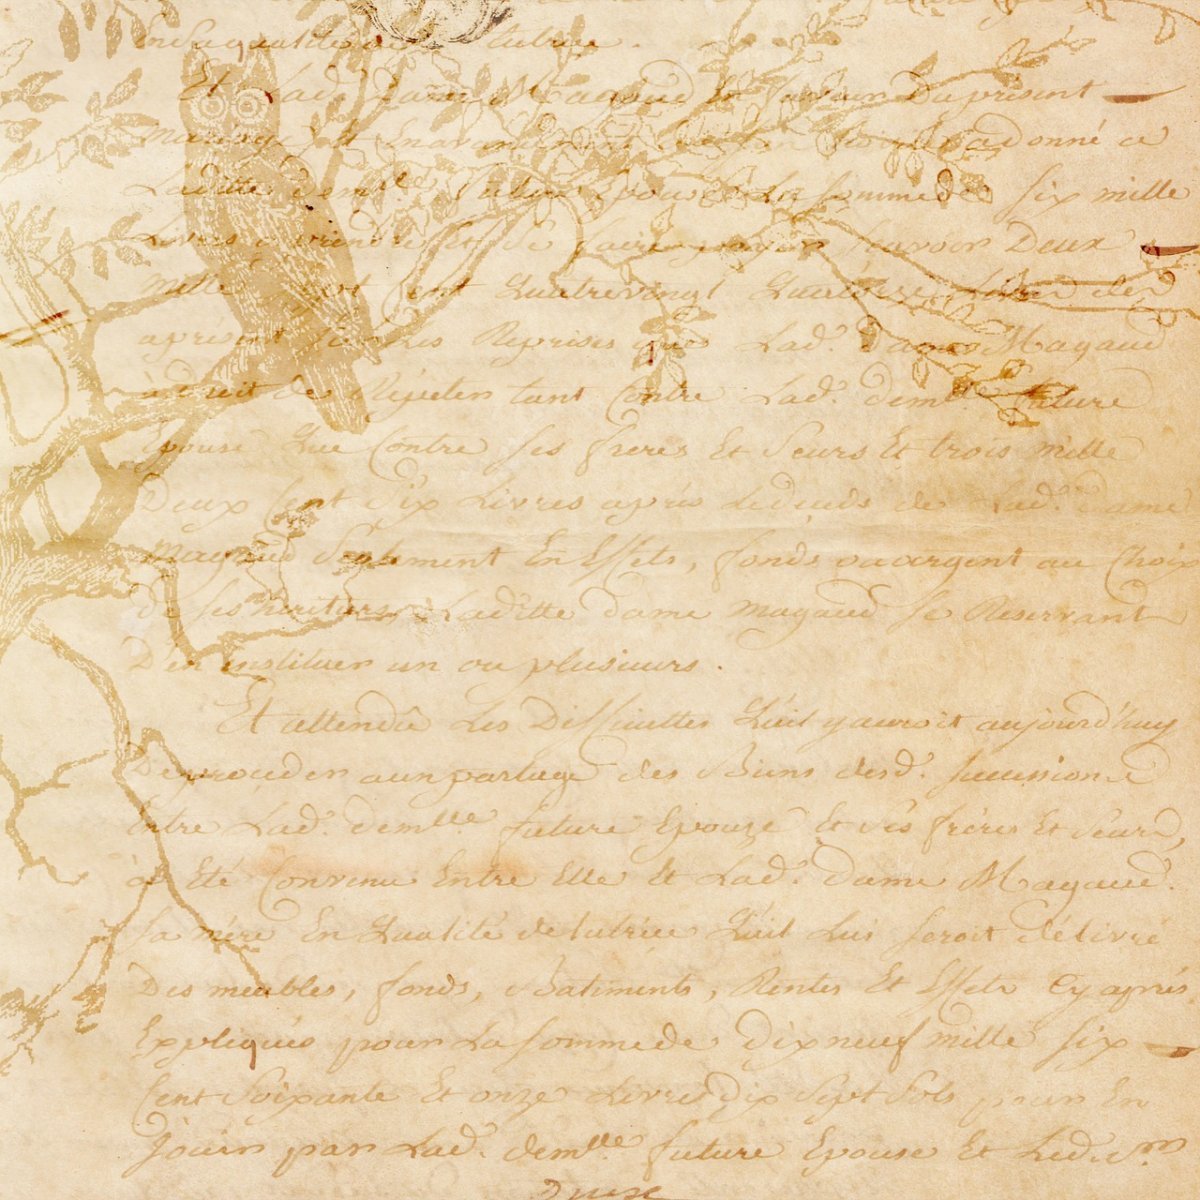 En sa qualité de tutrice.
Et Lad. Dame Magaud Et faveur Du présent
Mariage Et En avancement a donné a
Laditte demlle future Epouse La somme de six mille
Livres a prendre Et de faire savoir Deux
Mille Sept Cent Quatrevingt Quatorze Livres des
aprésent Sur Les Reprises que Lad. Dame Magaud
à droit de Répéter tant Contre Lad. demlle future
Epouse Que Contre ses freres Et seurs Et trois mille
Deux Cent Six Livres après Ledeceds de Lad. dame
Magaud Seulement En Effets, fonds ou argent au Choix
de ses heritiers Laditte dame Magaud se Reservant
D'en instituer un ou plusieurs.
Et attendû Les Difficultes Qu'il y auroit aujourd'huy
De proceder a un partage des Biens desd. successions
Entre Lad. demlle future Epouze Et ses freres Et seurs,
à Eté Convenu Entre Elle Et Lad. dame Magaud.
sa mére En Qualité de tutrice Qu'il Lui seroit délivré
Des meubles, fonds, Batiments, Rentes Et Effets Cy après
Expliqués pour La somme de Dix neuf mille six
Cent Soixante Et onze Livres Dix Sept Sols pour En
Jouir par Lad. demlle future Epouse Et Led.